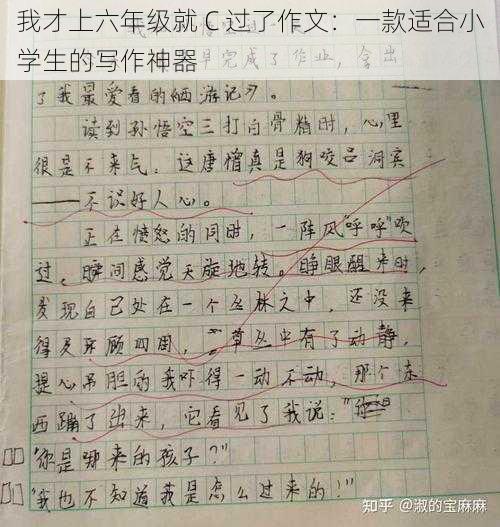 我才上六年级就 C 过了作文：一款适合小
学生的写作神器
早完成了作业，拿出
了我最爱看的《西游记》。
读到孙悟空三打白骨精时，心里
很是不来气，这唐僧真是狗咬吕洞宾
——不识好人心。
正在愤怒的同时，一阵风“呼呼”吹
过，瞬间感觉天旋地转。睁眼醒来时，
发现自己处在一个丛林之中，还没来
得及环顾四周，草丛中有了动静，
提心吊胆的我吓得一动不动，那个东
西蹦了出来，它看见了我说：“你
“你是哪来的孩子？”
“我也不知道我是怎么过来的！”
知乎 @淑的宝麻麻